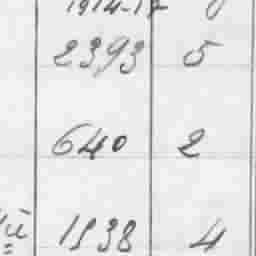 1914-17
2393 5
640 2
ий 1938 4